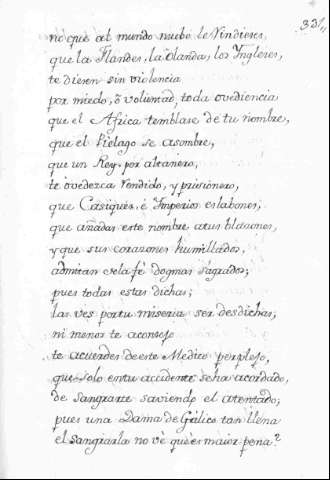 331,,
no que al mundo nuebo le Vindieses,
que la Flandes, la òlanda, los Yngleses,
te diesen sin violencia
por miedo, ò voluntad, toda ovediencia
que el Africa temblase de tu nombre,
que el Pielago se asombre,
que un Rey por altanero,
te òvedezca rendido, y prisionero,
que Casiques, è Ymperios eslabones,
que añadas este nombre atus blasones,
y que sus corazones humillados,
admitan dela fè dogmas sagrados;
pues todas estas dichas;
las ves portu miseria ser desdichas;
ni menos te aconsejo
te acuerdes deeste Medico perplejo,
que solo entu accidente seha acordado,
de sangrarte saviendo el atentado;
pues una Dama de Gàlico tan llena
el sangrarla no vè quèes maior pena?